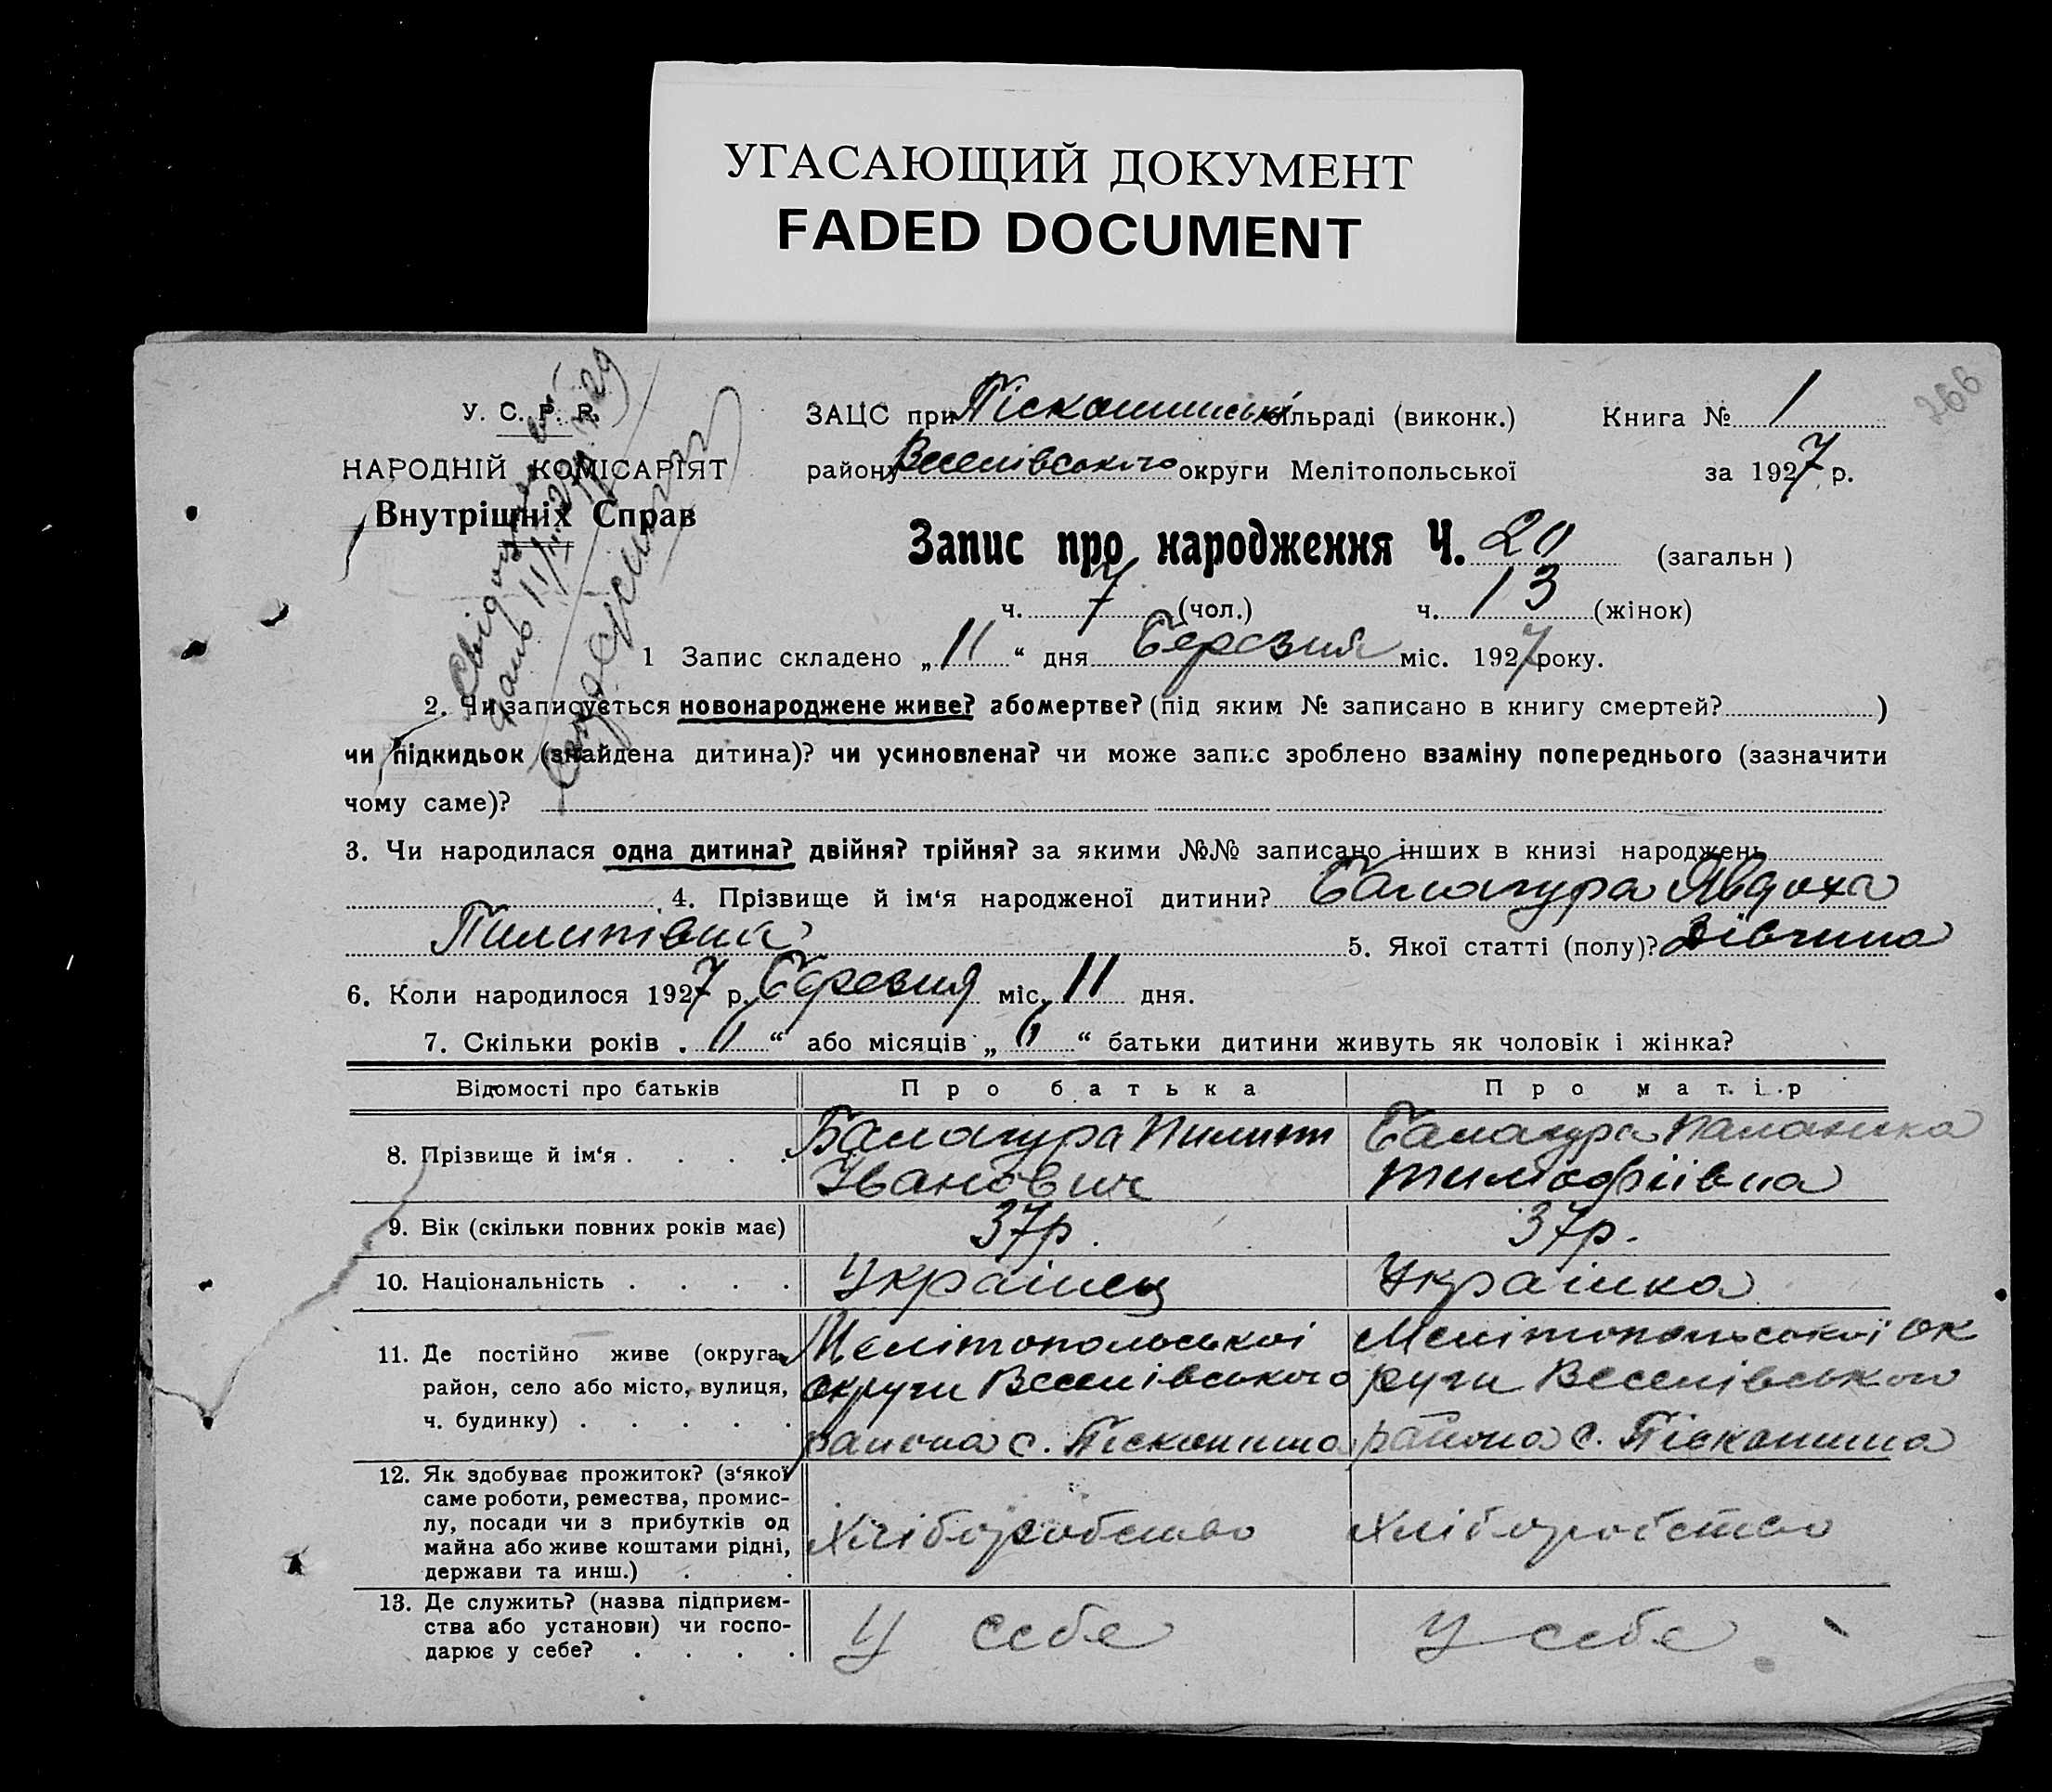 УГАСАЮЩИЙ ДОКУМЕНТ
FADED DOCUMENT
266
У. С. Р. Р.
НАРОДНІЙ КОМІСАРІЯТ
Внутрішніх Справ
ЗАЦС при Піскошинські сільраді (виконк.) Книга № 1
району Веселівського округи Мелітопольської за 1927 р.
Запис про народження Ч. 20 (загальн)
ч. 7 (чол.) ч. 13 (жінок)
1 Запис складено „11“ дня Березня міс. 1927 року.
2. Чи записується новонароджене живе? або мертве? (під яким № записано в книгу смертей? )
чи підкидьок (знайдена дитина)? чи усиновлена? чи може запис зроблено взаміну попереднього (зазначити
чому саме)?
3. Чи народилася одна дитина? двійня? трійня? за якими №№ записано інших в книзі народжень
4. Прізвище й ім‘я народженої дитини? Балагура Явдоха
Пилипівна 5. Якої статті (полу)? Дівчина
6. Коли народилося 1927 р. Березня міс. 11 дня.
7. Скільки років „ “ або місяців „ “ батьки дитини живуть як чоловік і жінка?
Відомості про батьків Про батька Про матір
8. Прізвище й ім‘я . . . . Балагура Пилип Балагура Паланика
Іванович Тимофіівна
9. Вік (скільки повних років має) 37р. 37р.
10. Національність . . . . Украінец Украінка
11. Де постійно живе (округа, Мелітопольськоі Мелітопольськоі ок
район, село або місто, вулиця, округи Веселівського руги Веселівського
ч. будинку) . . . . . района с. Піскошина района с. Піскошина
12. Як здобуває прожиток? (з‘якої
саме роботи, ремества, промис-
лу, посади чи з прибутків од Хліборобство Хліборобство
майна або живе коштами рідні,
держави та инш.) . .
13. Де служить? (назва підприєм-
ства або установи) чи госпо- У себе У себе
дарює у себе? . . . .
Свідоцтво